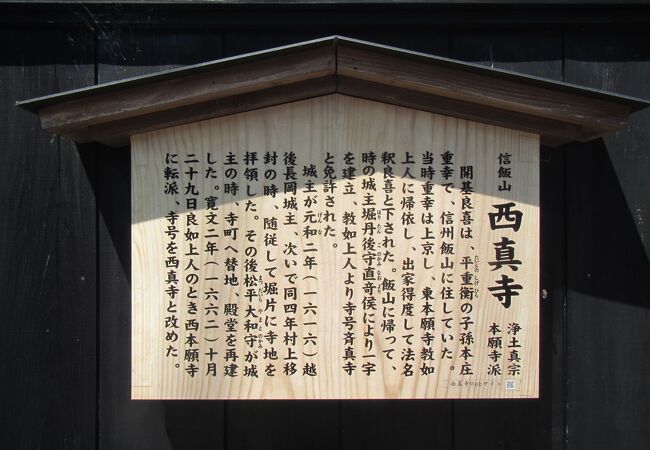 信飯山
西真寺
浄土真宗
本願寺派
開基良喜は、平重衡の子孫本庄
たいらのしげひら
重幸で、信州飯山に住していた。
当時重幸は上京し、東本願寺教如
上人に帰依し、出家得度して法名
釈良喜と下された。飯山に帰って、
時の城主堀丹後守直竒侯により一字
ほり たんごのかみ なおより
を建立、教如上人より寺号斉真寺
と免許された。
城主が元和二年(一六一六)越
げんな
後長岡城主、次いで同四年村上移
封の時、随従して堀片に寺地を
拝領した。その後松平大和守が城
まつだいら やまとのかみ
主の時、寺町へ替地、殿堂を再建
した。寛文二年(一六六二)十月
二十九日良如上人のとき西本願寺
に転派、寺号を西真寺と改めた。
西真寺Webサイト